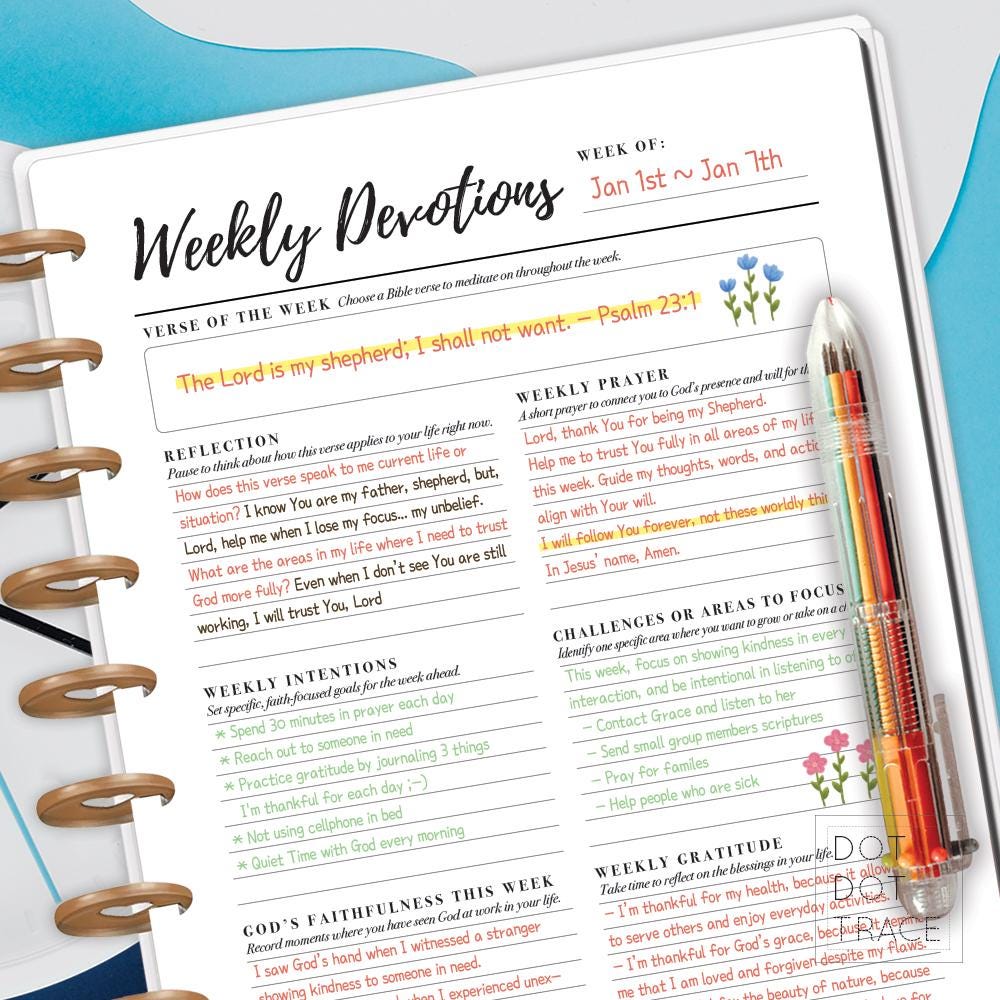 WEEK OF:
Jan 1st ~ Jan 7th
Weekly Devotions
VERSE OF THE WEEK Choose a Bible verse to meditate on throughout the week.
The Lord is my shepherd; I shall not want. – Psalm 23:1
REFLECTION
Pause to think about how this verse applies to your life right now.
How does this verse speak to me current life or
situation? I know You are my father, shepherd, but,
Lord, help me when I lose my focus... my unbelief.
What are the areas in my life where I need to trust
God more fully? Even when I don't see You are still
working, I will trust You, Lord
WEEKLY PRAYER
A short prayer to connect you to God's presence and will for
Lord, thank You for being my Shepherd.
Help me to trust You fully in all areas of my
this week. Guide my thoughts, words, and
align with Your will.
I will follow You forever, not these worldly
In Jesus' name, Amen.
WEEKLY INTENTIONS
Set specific, faith-focused goals for the week ahead.
* Spend 30 minutes in prayer each day
* Reach out to someone in need
* Practice gratitude by journaling 3 things
I'm thankful for each day ;-)
* Not using cellphone in bed
* Quiet Time with God every morning
CHALLENGES OR AREAS TO FOCUS
Identify one specific area where you want to grow or take on a
This week, focus on showing kindness in every
interaction, and be intentional in listening to
– Contact Grace and listen to her
– Send small group members scriptures
– Pray for familes
– Help people who are sick
GOD'S FAITHFULNESS THIS WEEK
Record moments where you have seen God at work in your life.
I saw God's hand when I witnessed a stranger
showing kindness to someone in need.
when I experienced unex–
WEEKLY GRATITUDE
Take time to reflect on the blessings in your life.
– I'm thankful for my health, because it
to serve others and enjoy everyday activities.
– I'm thankful for God's grace, because it
me that I am loved and forgiven despite my flaws.
for the beauty of nature, because
DOT
DOT
TRACE